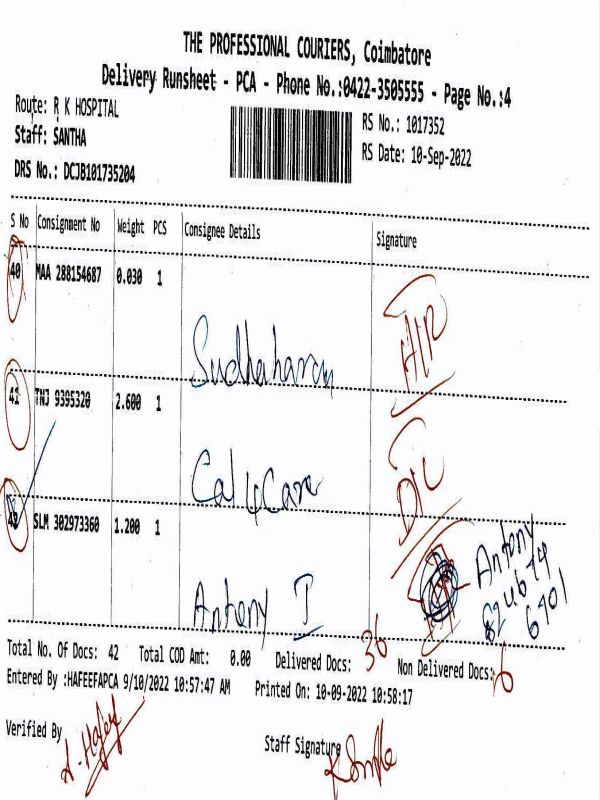 THE PROFESSIONAL COURIERS, Coimbatore
Delivery Runsheet - PCA - Phone No.:0422-3505555 - Page No.:4
Route: R K HOSPITAL
Staff: SANTHA
DRS No.: DCJB101735204
RS No.: 1017352
RS Date: 10-Sep-2022
S No Consignment No Weight PCS Consignee Details Signature
40 MAA 288154687 0.030 1
Sudhaharan
41 TNJ 9395320 2.600 1
Antony I
42 SLM 302973360 1.200 1
Antony
Total No. Of Docs: 42 Total COD Amt: 0.00 Delivered Docs: 36 Non Delivered Docs: 6
Entered By :HAFEEFAPCA 9/10/2022 10:57:47 AM Printed On: 10-09-2022 10:58:17
Verified By
Staff Signature